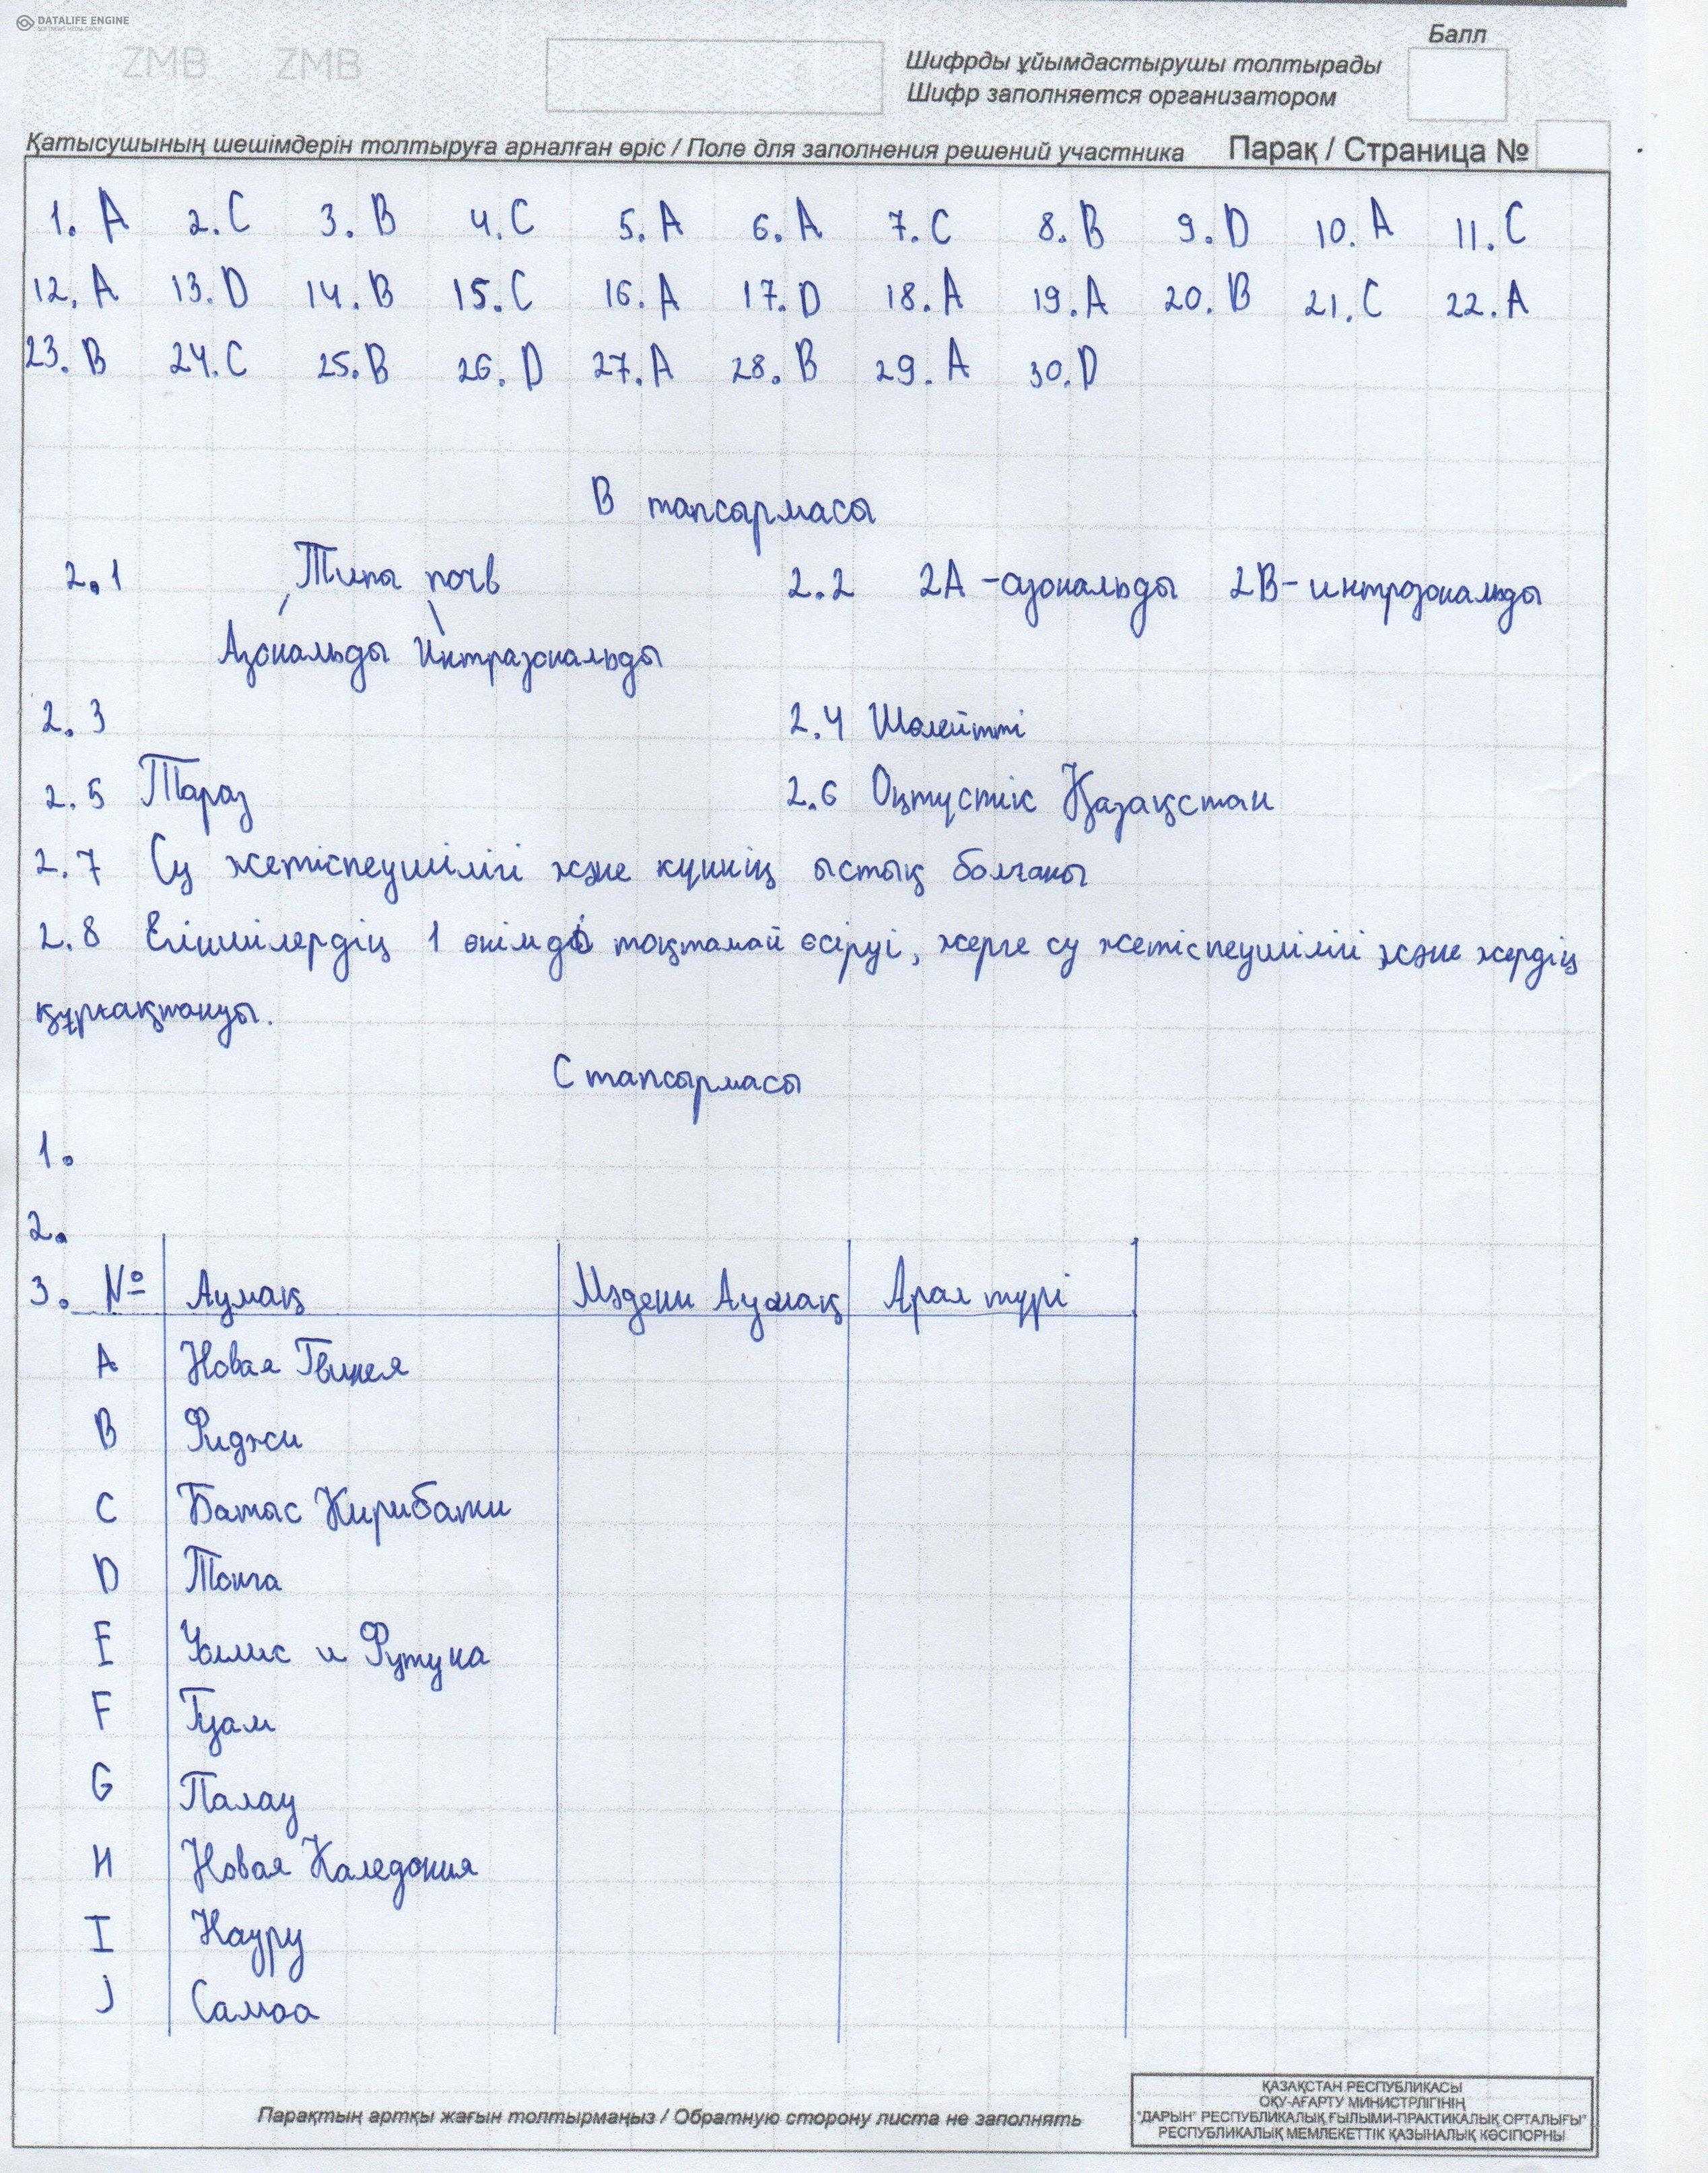 DATALIFE ENGINE
ZMB ZMB
Балл
Шифрды ұйымдастырушы толтырады
Шифр заполняется организатором
Қатысушының шешімдерін толтыруға арналған өріс / Поле для заполнения решений участника Парақ / Страница №
1. A 2. C 3. B 4. C 5. A 6. A 7. C 8. B 9. D 10. A 11. C
12. A 13. D 14. B 15. C 16. A 17. D 18. A 19. A 20. B 21. C 22. A
23. B 24. C 25. B 26. D 27. A 28. B 29. A 30. D
В тапсырмасы
2.1 Типы почв 2.2 2А - азональды 2В - интрозональды
Азональды Интразональды
2.3 2.4 Шөлейтті
2.5 Тараз 2.6 Оңтүстік Қазақстан
2.7 Су жетіспеушілігі және күннің ыстық болғаны
2.8 Егіншілердің 1 өнімді тоқтамай өсіруі, жерге су жетіспеушілігі және жердің
құрғақтануы.
С тапсырмасы
1.
2.
3. № Аумақ Мәдени Аумақ Арал түрі
A Новая Гвинея
B Фиджи
C Батыс Кирибати
D Тонга
E Уолис и Футуна
F Гуам
G Палау
H Новая Каледония
I Науру
J Самоа
Парақтың артқы жағын толтырмаңыз / Обратную сторону листа не заполнять
ҚАЗАҚСТАН РЕСПУБЛИКАСЫ
ОҚУ-АҒАРТУ МИНИСТРЛІГІНІҢ
"ДАРЫН" РЕСПУБЛИКАЛЫҚ ҒЫЛЫМИ-ПРАКТИКАЛЫҚ ОРТАЛЫҒЫ"
РЕСПУБЛИКАЛЫҚ МЕМЛЕКЕТТІК ҚАЗЫНАЛЫҚ КӘСІПОРНЫ